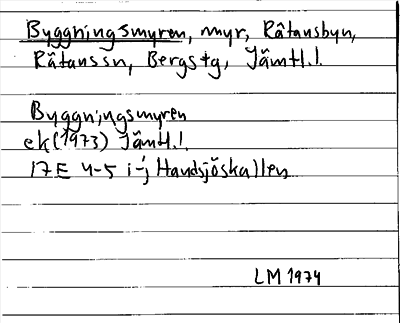 Byggningsmyren, myr, Råtansbyn,
Råtanssn, Bergstg, Jämtl.l.
Byggningsmyren
ek (1973) Jämtl.l.
17E 4-5 i-j Handsjöskallen
LM 1974